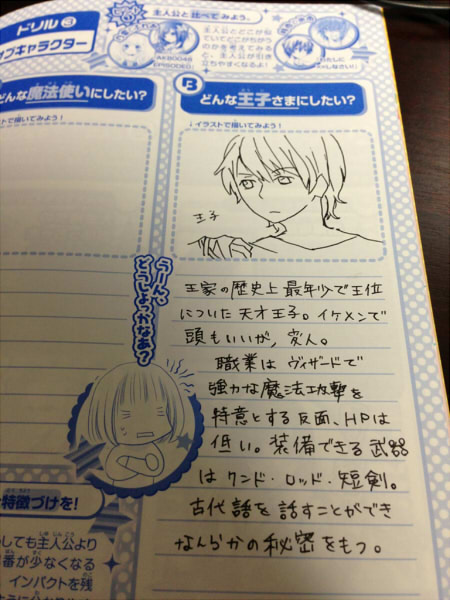 ドリル③
ブキャラクター
主人公と比べてみよう。
主人公とどこが似
ていてどこがちがう
のかを考えてみる
と、主人公が引き
立ちやすくなるよ!
AKB0048
EPISODE0
どんな魔法使いにしたい?
ストで描いてみよう!
B どんな王子さまにしたい?
↓イラストで描いてみよう!
王子
うーん、
どうしよっかなあ?
王家の歴史上最年少で王位
についた天才王子。イケメンで
頭もいいが、変人。
職業はヴィザードで
強力な魔法攻撃を
特意とする反面、HPは
低い。装備できる武器
はワンド・ロッド・短剣。
古代語を話すことができ
なんらかの秘密をもつ。
特徴づけを!
しても主人公より
番が少なくなる
インパクトを残